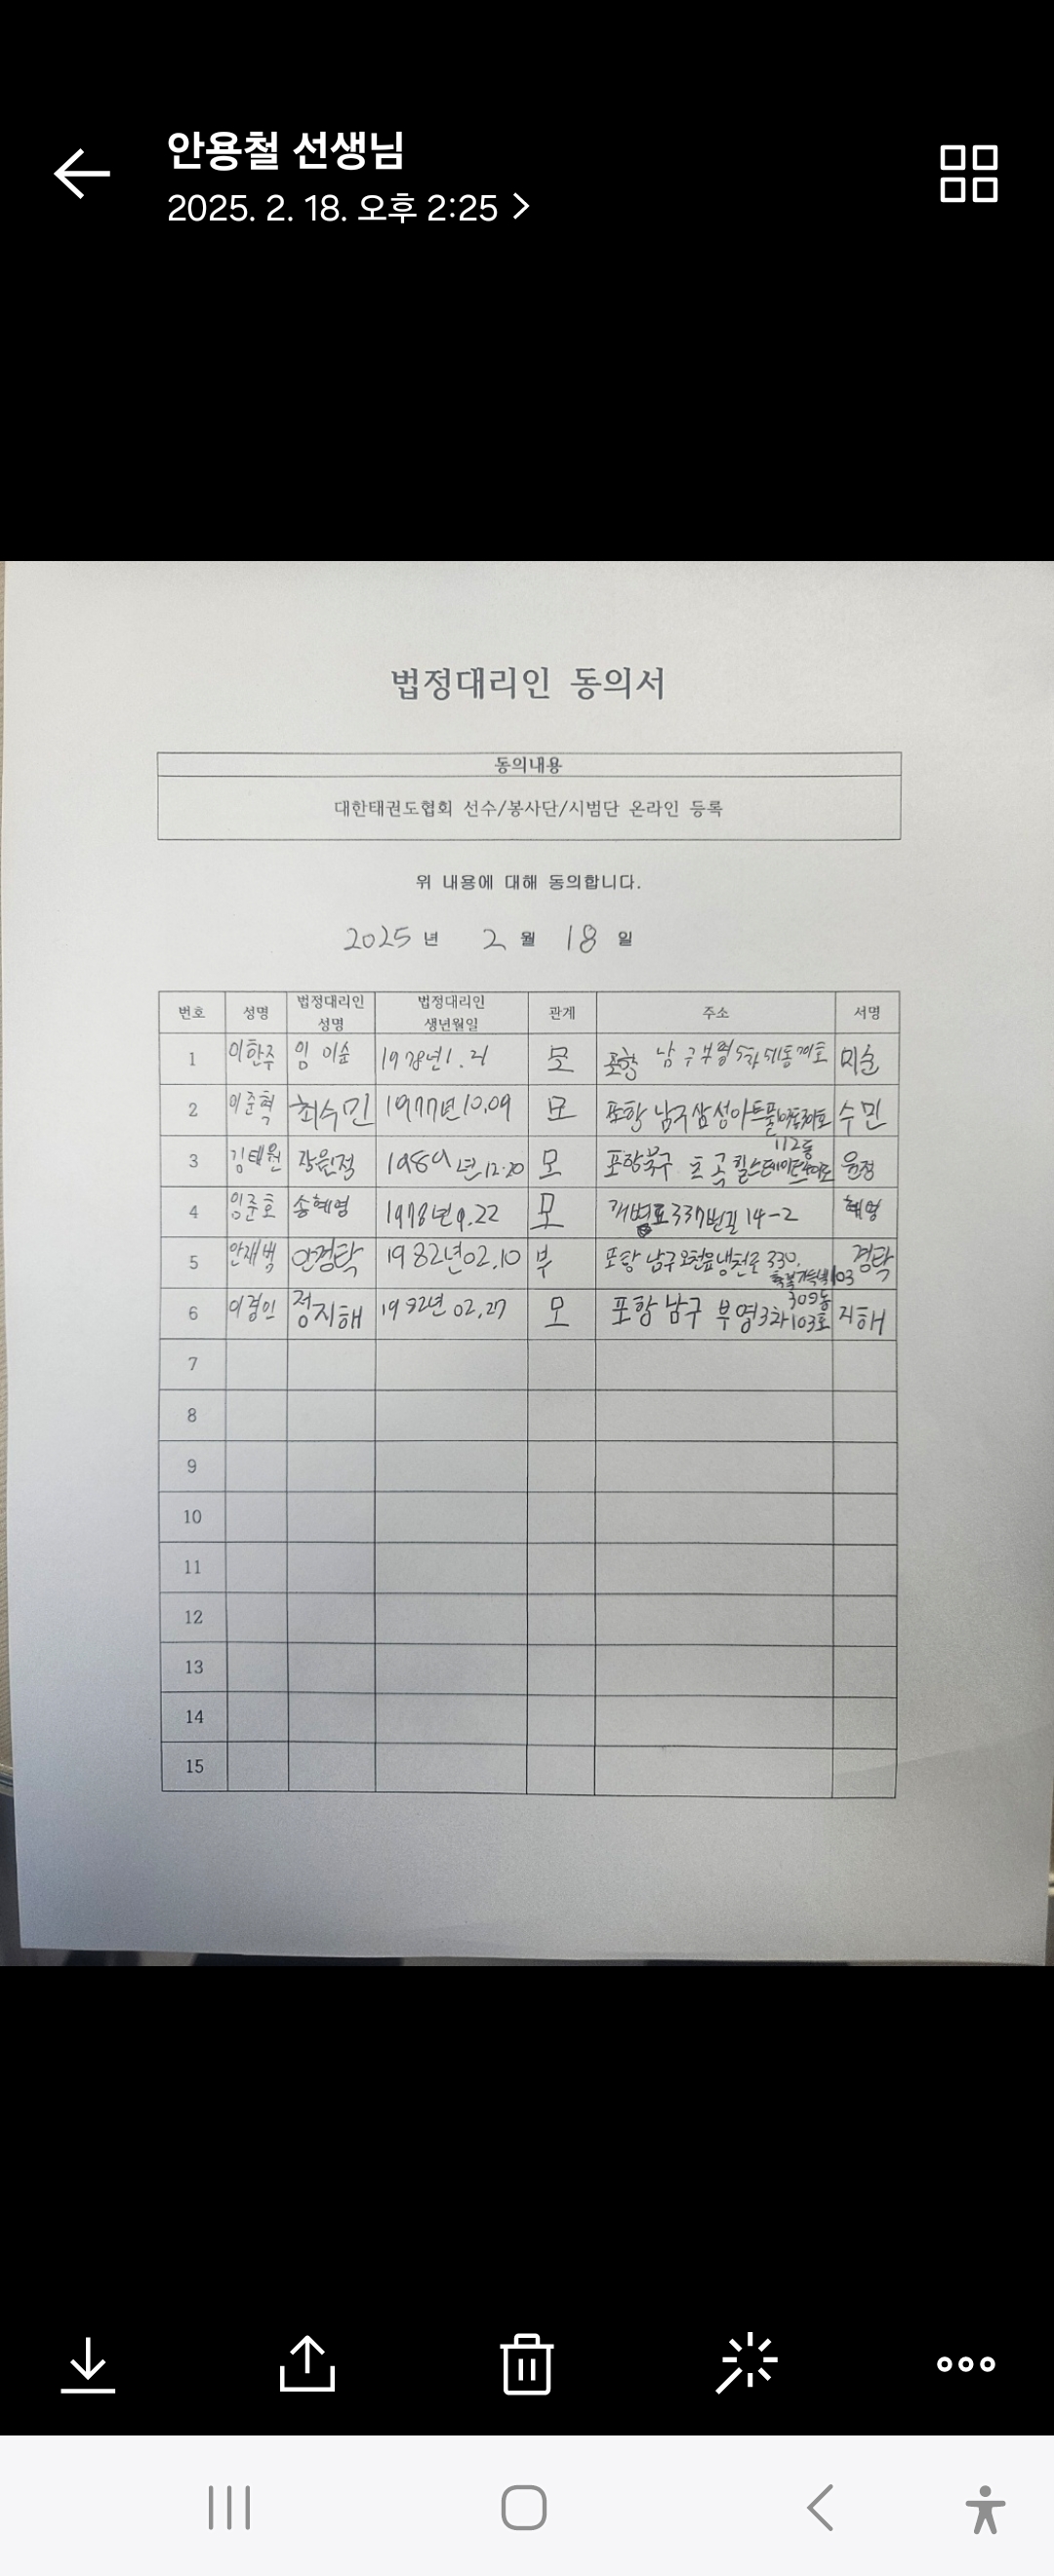 안용철 선생님
2025. 2. 18. 오후 2:25
법정대리인 동의서
동의내용
대한태권도협회 선수/봉사단/시범단 온라인 등록
위 내용에 대해 동의합니다.
2025 년 2 월 18 일
번호 성명 법정대리인 성명 법정대리인 생년월일 관계 주소 서명
1 이한주 임미순 1978년1.21 모 포항 남구 부영5차 미순
2 이준혁 최수민 1977년10.09 모 포항 남구 삼성아트풀 수민
3 김태원 장윤정 1989년12.20 모 포항북구 초곡 힐스테이트 112동 윤정
4 임준호 송혜영 1978년9.22 모 337번길 14-2 혜영
5 안재범 안경탁 1982년02.10 부 포항 남구 오천읍 냉천로 330, 103 경탁
6 이경민 정지해 1982년 02.27 모 포항 남구 부영3차 309동 103호 지해
7
8
9
10
11
12
13
14
15